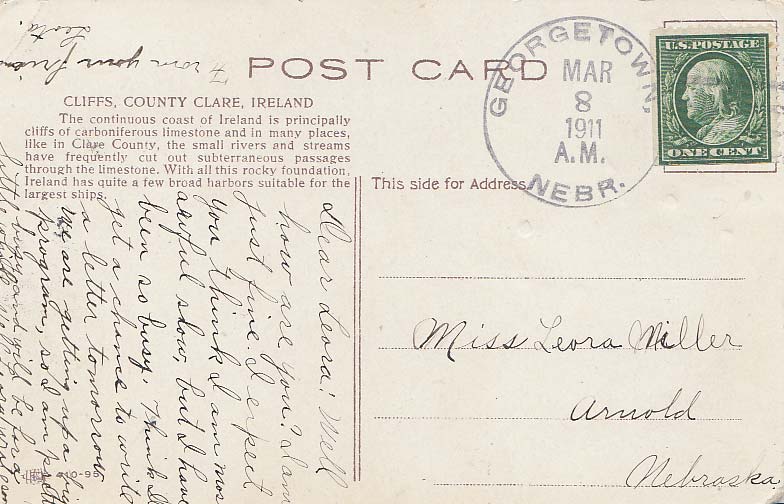 From your friend
Leota.
POST CARD
CLIFFS, COUNTY CLARE, IRELAND
The continuous coast of Ireland is principally
cliffs of carboniferous limestone and in many places,
like in Clare County, the small rivers and streams
have frequently cut out subterraneous passages
through the limestone. With all this rocky foundation,
Ireland has quite a few broad harbors suitable for the
largest ships.
GEORGETOWN,
MAR
8
1911
A.M.
NEBR.
U.S. POSTAGE
ONE CENT
This side for Address
Dear Leora: Well
how are you? I am
just fine I expect
you think I am mos
awful slow, but I have
been so busy, think I
get a chance to write
a letter tomorrow
we are getting up a
program, so I am
little busy and will be for a
little while
Miss Leora Miller
Arnold
Nebraska